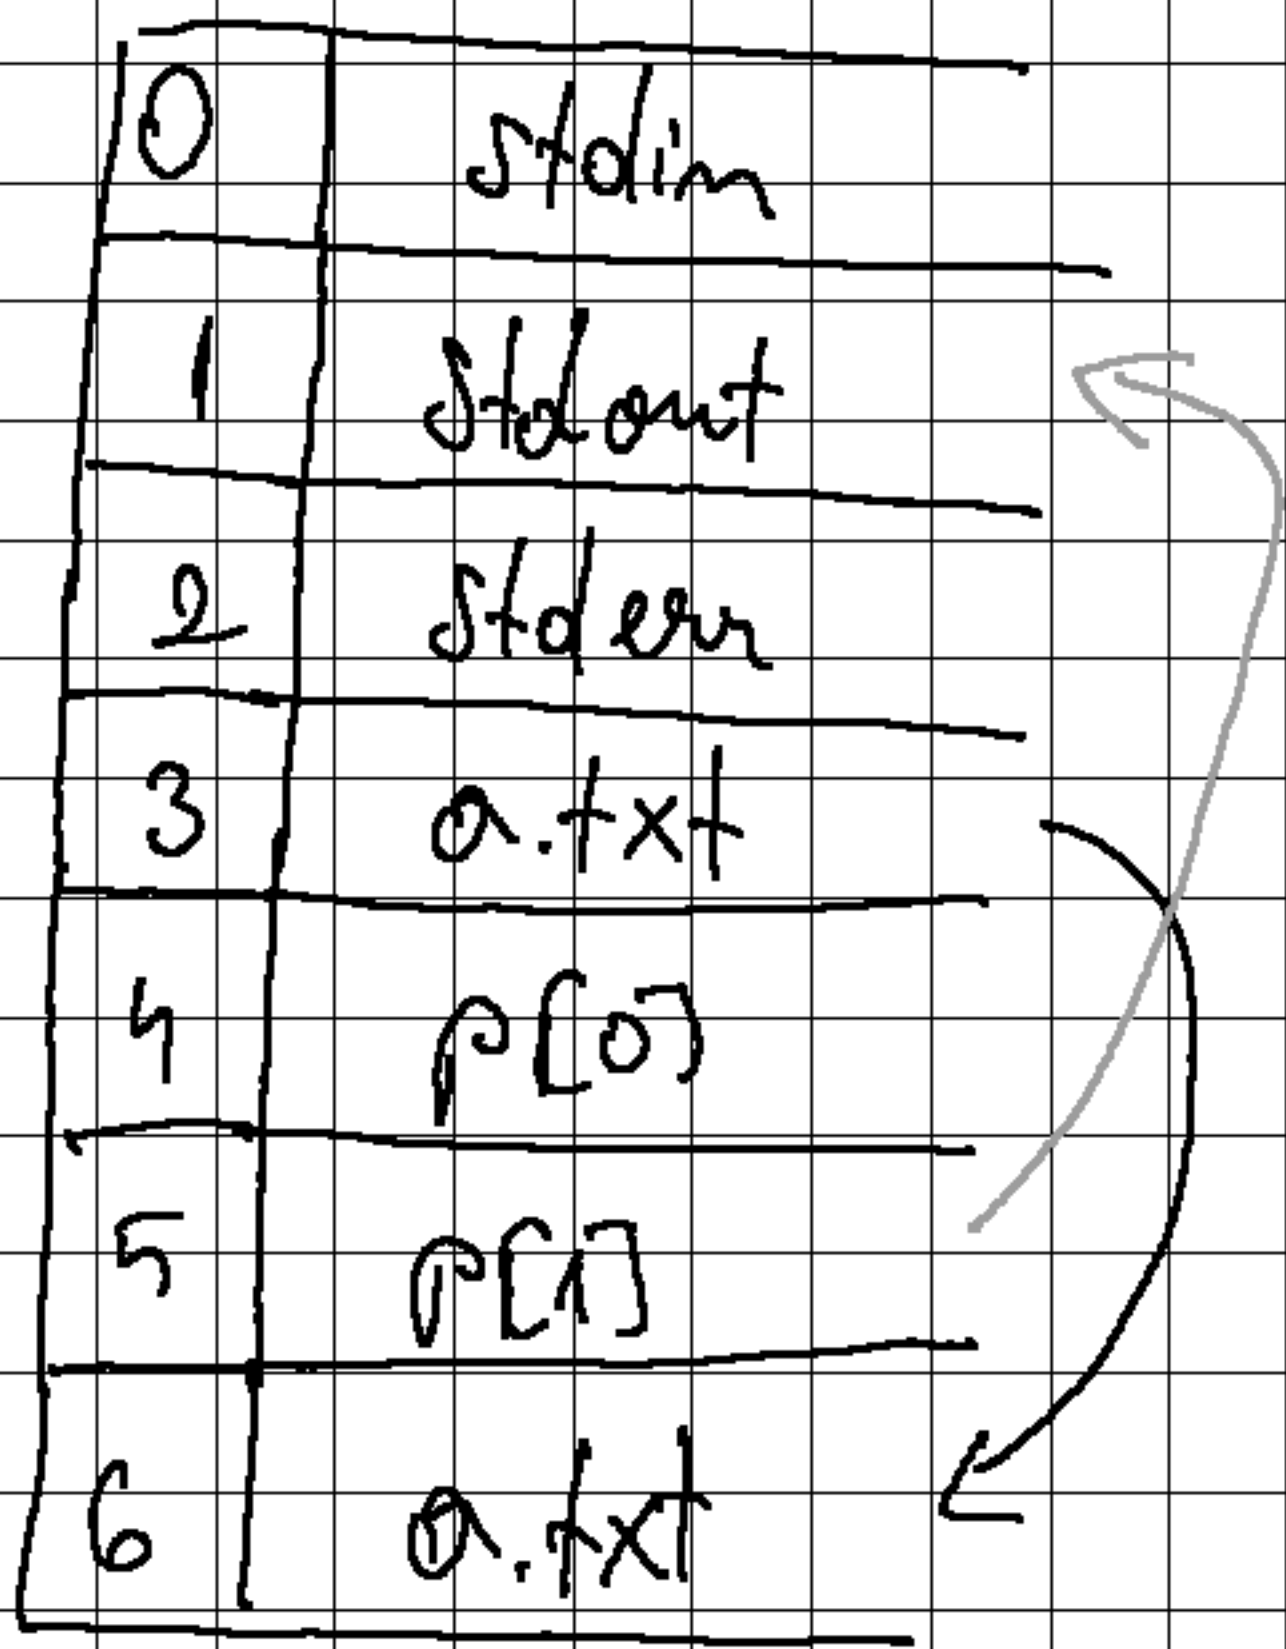 0 stdin
1 stdout
2 stderr
3 a.txt
4 p[0]
5 p[1]
6 a.txt